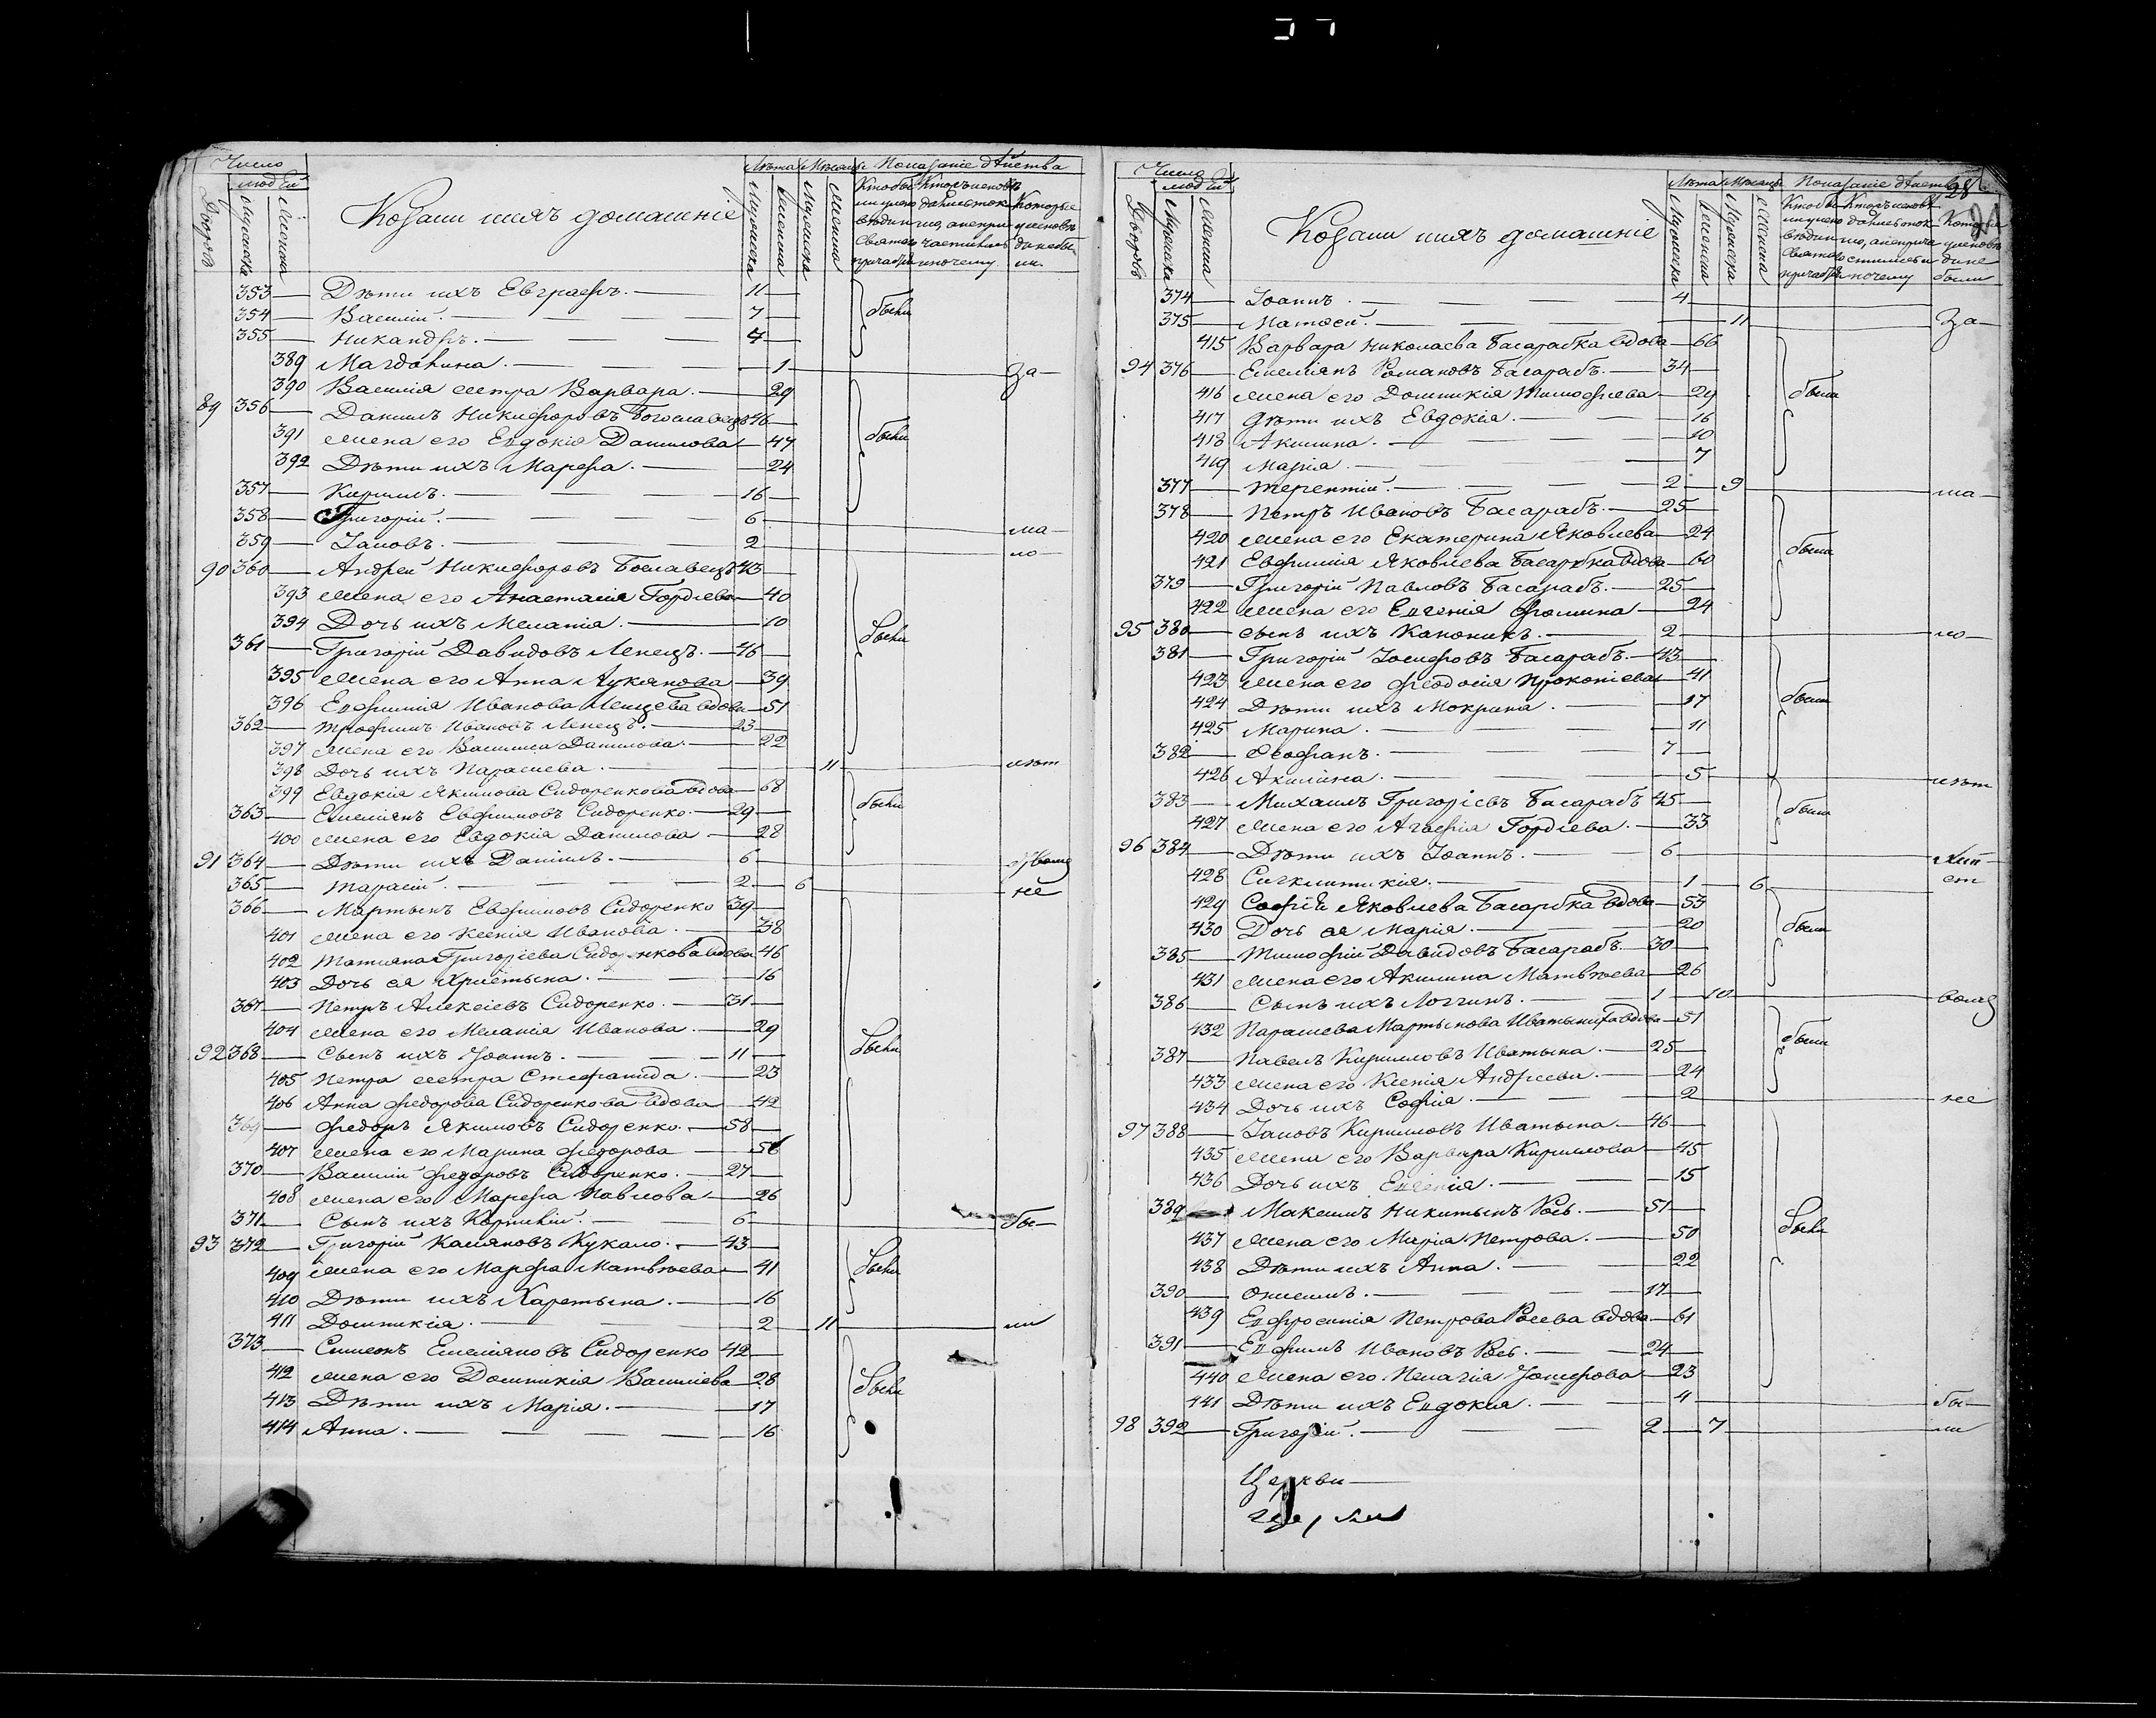 Число
людей
Дворовъ
Мужеска
Женска
Козаки и ихъ домашніе
Лѣта
Мѣсяцы
Показаніе дѣйства
Мужеска
Женска
Мужеска
Женска
353 Дѣти ихъ Евграфъ. 11
354 Василій. 7 были
355 Никандръ. 4
389 Магдалина. 1 За
390 Василія сестра Варвара. 29
89 356 Даніилъ Никифоровъ Богославецъ 46
391 Жена его Евдокія Данилова 47 были
392 Дѣти ихъ Марѳа. 24
357 Кириллъ. 16
358 Григорій. 6 ма
359 Іаковъ. 2 ло
90 360 Андрей Никифоровъ Бославецъ 43
393 Жена его Анастасія Гордіева 40
394 Дочь ихъ Меланія. 10
361 Григорій Давидовъ Ленецъ. 46 были
395 Жена его Анна Лукянова 39
396 Евфимія Иванова Ленцева вдова 51
362 Трофимъ Ивановъ Ленецъ. 23
397 Жена его Василиса Данилова. 22
398 Дочь ихъ Параскева. 11 лѣт
399 Евдокія Якимова Сидоренкова вдова 68
363 Емеліянъ Евфимовъ Сидоренко. 29 были
400 Жена его Евдокія Данилова 28
91 364 Дѣти ихъ Даніилъ. 6
365 Тарасій. 2 6 не
366 Мартынъ Евфимовъ Сидоренко 39
401 Жена его Ксенія Иванова. 38
402 Татіяна Григоріева Сидоренкова вдова 46
403 Дочь ея Христина. 16
367 Петръ Алексіевъ Сидоренко. 31
404 Жена его Меланія Иванова. 29
92 368 Сынъ ихъ Іоаннъ. 11 были
405 Петра сестра Стефанида. 23
406 Анна Федорова Сидоренкова вдова 42
369 Федоръ Якимовъ Сидоренко. 58
407 Жена его Марина Федорова 56
370 Василій Федоровъ Сидоренко. 27
408 Жена его Марѳа Павлова 26
371 Сынъ ихъ Корнилій. 6 бы
93 372 Григорій Касіяновъ Кукало. 43
409 Жена его Марѳа Матвѣева 41 были
410 Дѣти ихъ Харитына. 16
411 Домникія. 2 11 ли
373 Симеонъ Емеліяновъ Сидоренко 42
412 Жена его Домникія Василіева 28 были
413 Дѣти ихъ Марія. 17
414 Анна. 16
98
Число
людей
Дворовъ
Мужеска
Женска
Козаки и ихъ домашніе
Лѣта
Мѣсяцы
Показаніе дѣйства
Мужеска
Женска
Мужеска
Женска
374 Іоаннъ. 4
375 Матѳей. 11 За
415 Варвара Николаева Басарабка вдова 66
94 376 Емеліянъ Романовъ Басарабъ. 34
416 Жена его Домникія Тимофіева 29 были
417 Дѣти ихъ Евдокія. 16
418 Акилина. 10
419 Марія. 7
377 Терентій. 2 9 ма
378 Петръ Ивановъ Басарабъ. 25
420 Жена его Екатерина Яковлева 24
421 Евфимія Яковлева Басарабка вдова 60 были
379 Григорій Павловъ Басарабъ. 25
422 Жена его Евгенія Фомина 24
95 380 Сынъ ихъ Каноникъ. 2 ло
381 Григорій Іосифовъ Басарабъ. 43
423 Жена его Феодосія Прокопіева 41
424 Дѣти ихъ Мокрина. 17 были
425 Марина. 11
382 Ѳеофанъ. 7
426 Акилина. 5 лѣт
383 Михаилъ Григоріевъ Басарабъ 45 были
427 Жена его Агафія Гордіева. 33
96 384 Дѣти ихъ Іоаннъ. 6
428 Сигклитикія. 1 6 ст
429 Софія Яковлева Басарабка вдова 53
430 Дочь ея Марія. 20 были
385 Тимофій Давидовъ Басарабъ. 30
431 Жена его Акилина Матвѣева 26
386 Сынъ ихъ Логгинъ. 1 10
432 Параскева Мартынова Иватынка вдова 51 были
387 Павелъ Кирилловъ Иватына. 25
433 Жена его Ксенія Андреева. 24
434 Дочь ихъ Софія. 2 не
97 388 Іаковъ Кирилловъ Иватына. 46
435 Жена его Варвара Кирилова 45
436 Дочь ихъ Евгенія. 15
389 Максимъ Никитинъ Рось. 51 были
437 Жена его Марія Петрова. 50
438 Дѣти ихъ Анна. 22
390 Онисимъ. 17
439 Евфросинія Петрова Росева вдова 61
391 Евфимъ Ивановъ Рось. 24
440 Жена его Пелагія Іосифова 23
441 Дѣти ихъ Евдокія. 4 бы
98 392 Григорій. 2 7 ли
Церкви